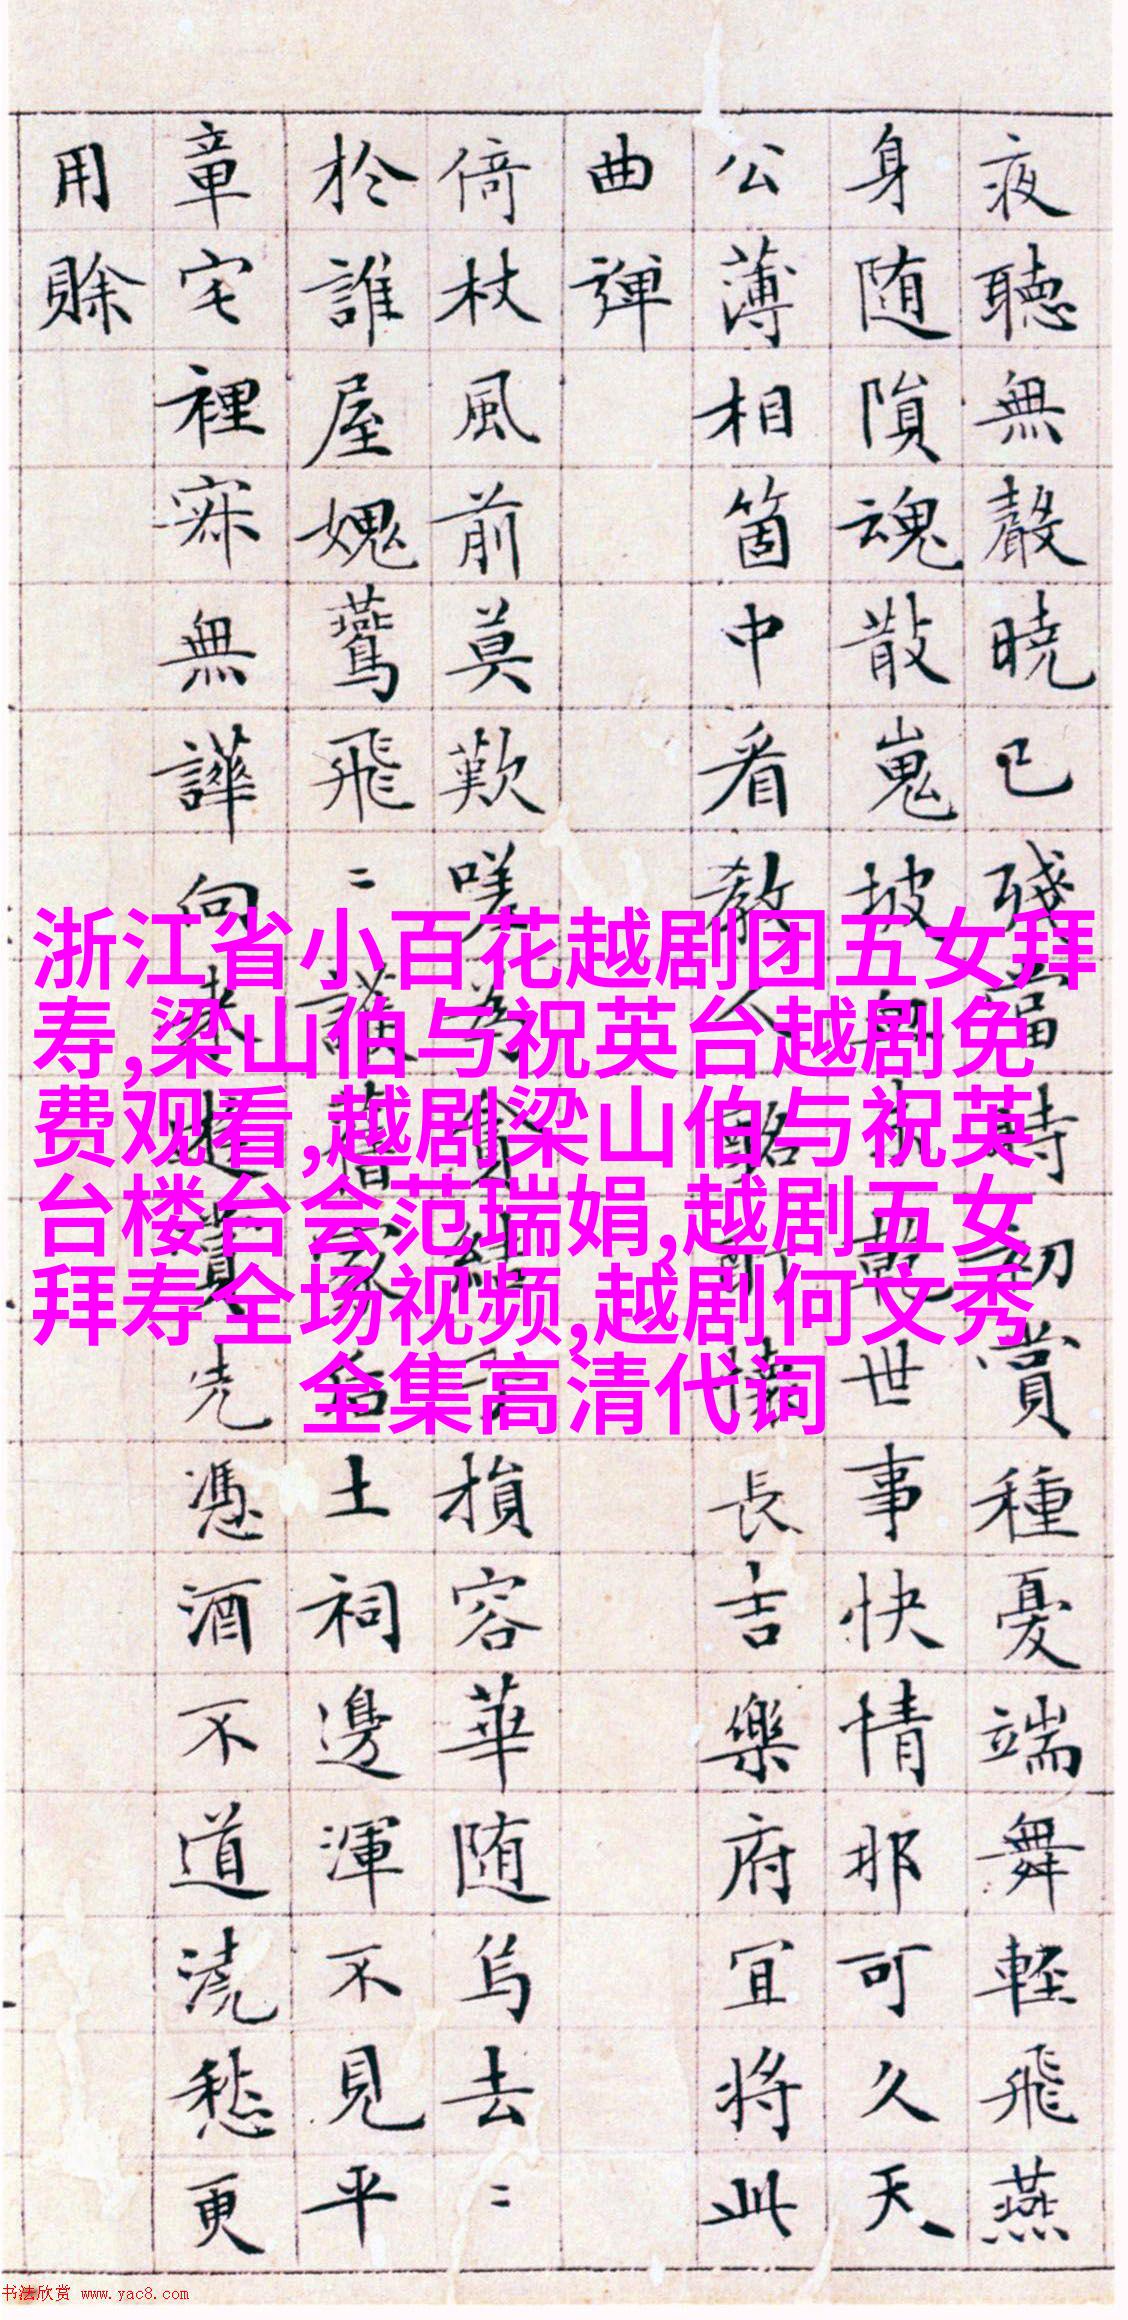 夜聽無聲曉已殘時初賞種憂端舞輕飛燕
身随隕魂散嵬坡世事快情那可久天
公薄相箇中看教人前長吉樂府宜將此
曲彈
倚杖風前莫歎嗟為貪結子損容華随烏去〻
於誰屋媿鸎飛〻護舊家后土祠邊渾不見平
章宅裡寂無譁向來賞先憑酒不道澆愁更
用賒
浙江省小百花越剧团五女拜
寿,梁山伯与祝英台越剧免
费观看,越剧梁山伯与祝英
台楼台会范瑞娟,越剧五女
拜寿全场视频,越剧何文秀
全集高清代词
书法欣赏 www.yac8.com